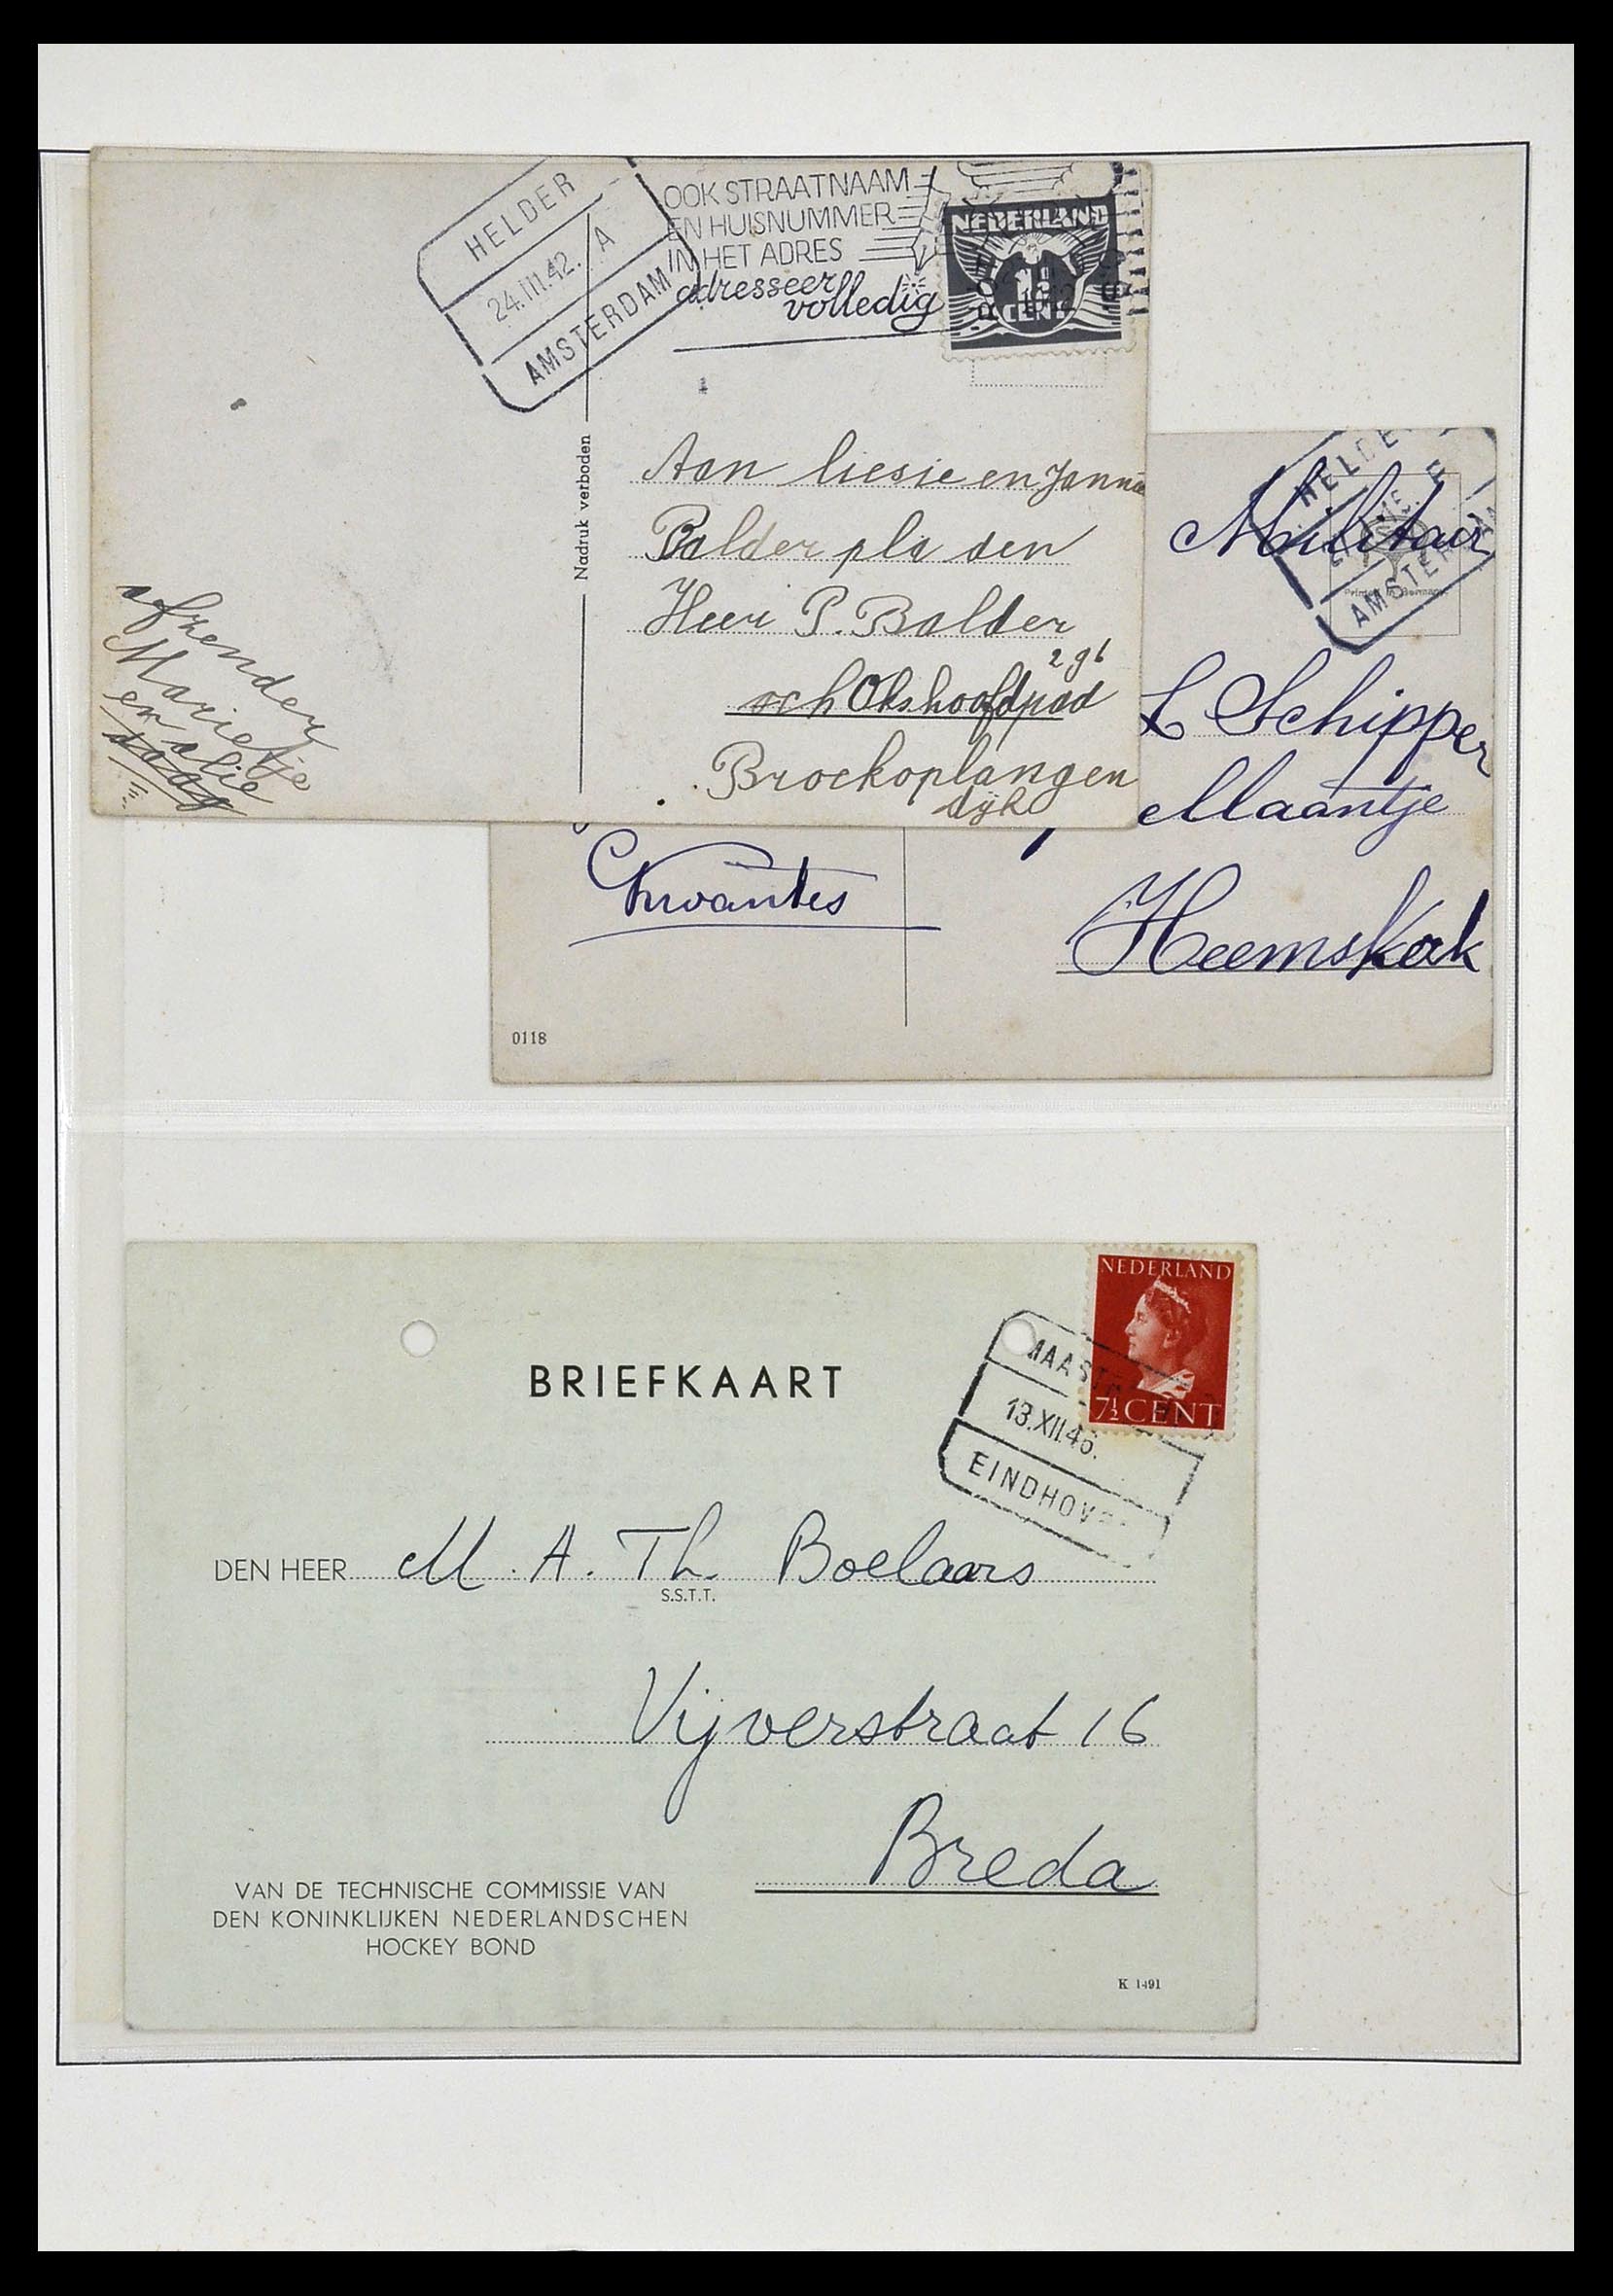 HELDER
24.III.42. A
AMSTERDAM
OOK STRAATNAAM
EN HUISNUMMER
IN HET ADRES
adresseer
volledig
NEDERLAND
CENT
Nadruk verboden
Aan liesie en Jannie
Balder pla den
Heer P. Balder
296
sch Okshoofdpad
Broekoplangen
dijk
afzender
Marietje
en alie
HELDE
AMSTER
Militair
L Schipper
Maantje
Heemskerk
0118
BRIEFKAART
NEDERLAND
7½ CENT
MAAST
13.XII.46.
EINDHOVE
DEN HEER M. A. Th. Boelaars
S.S.T.T.
Vijverstraat 16
Breda
VAN DE TECHNISCHE COMMISSIE VAN
DEN KONINKLIJKEN NEDERLANDSCHEN
HOCKEY BOND
K 1491